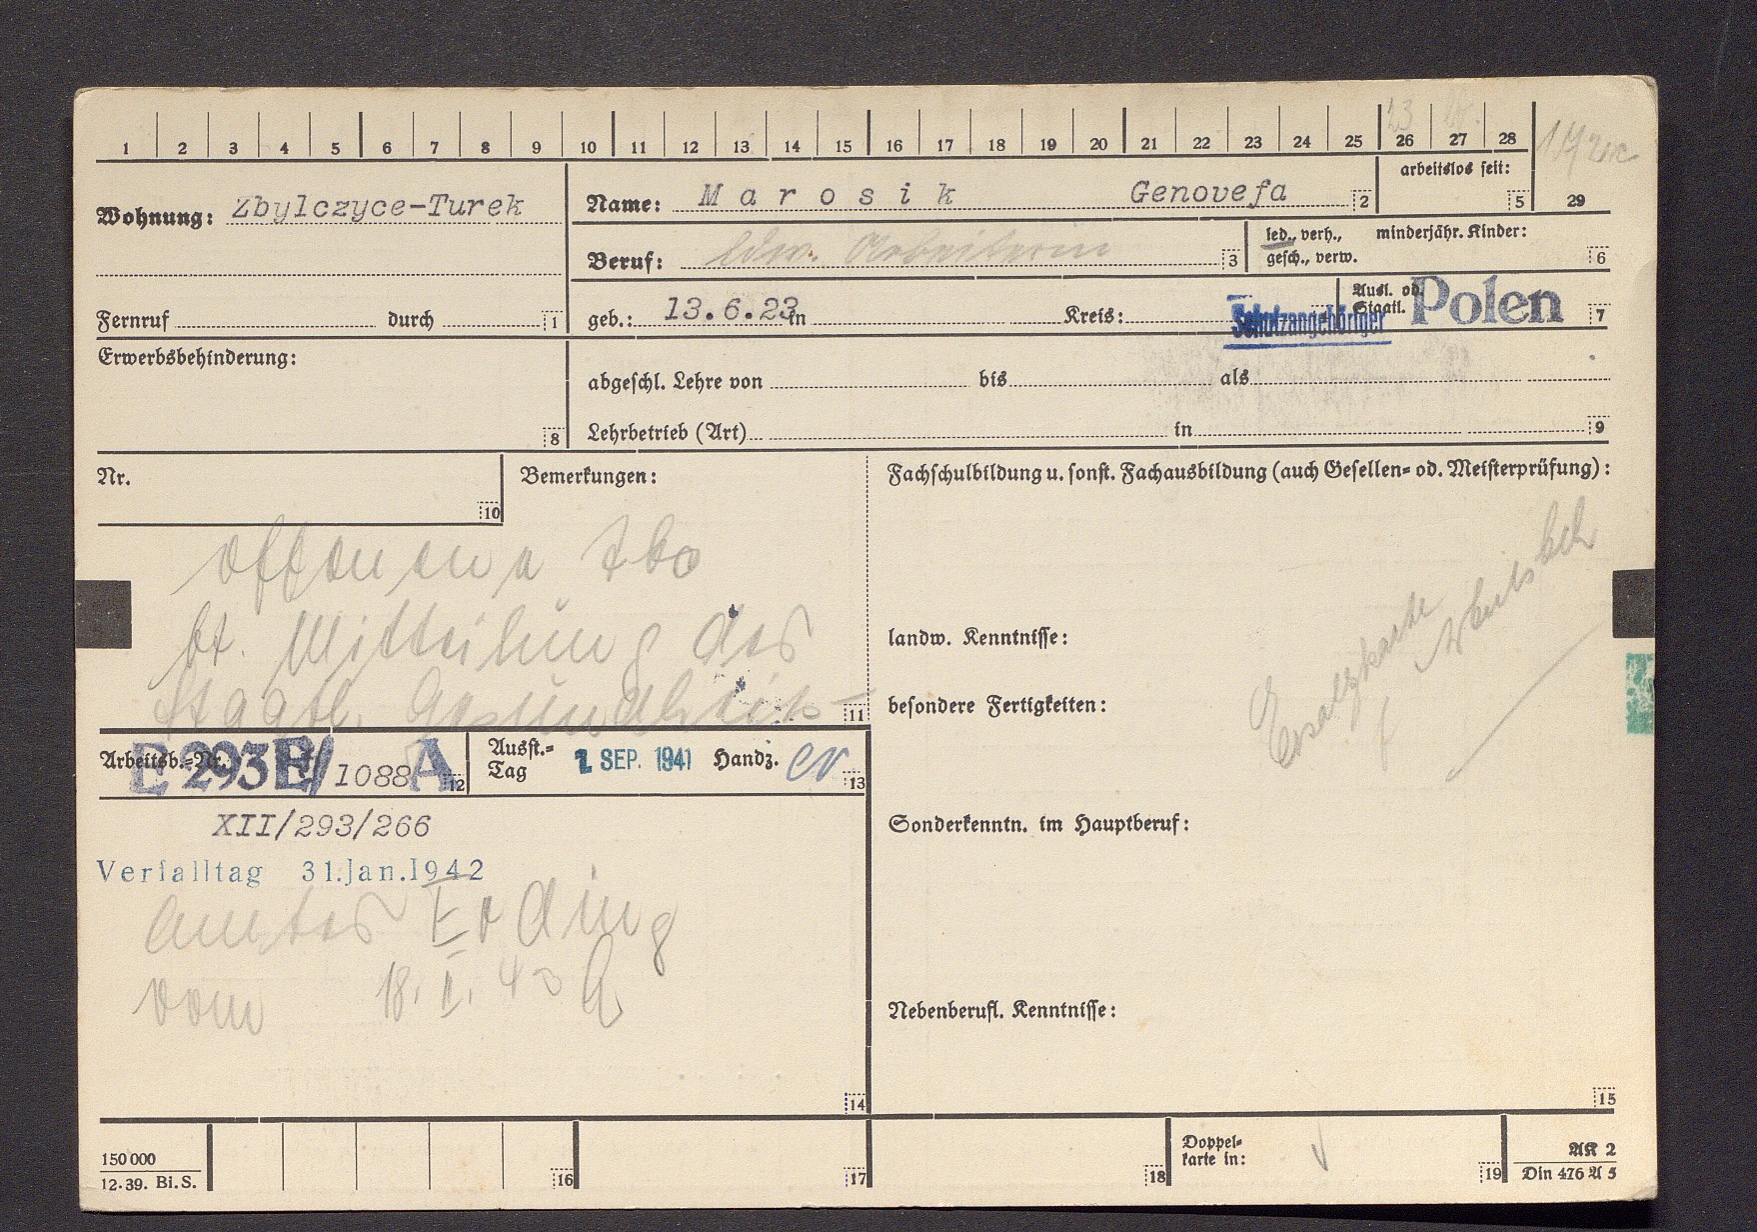 1 2 3 4 5 6 7 8 9 10 11 12 13 14 15 16 17 18 19 20 21 22 23 24 25 26 27 28
29
Wohnung: Zbylczyce-Turek
Name: Marosik Genovefa 2
arbeitslos seit: 5
Beruf: ldw. Arbeiterin 3
led., verh., minderjähr. Kinder:
gesch., verw. 6
Fernruf durch 1
geb.: 13.6.23 in Kreis:
Schutzangehöriger
Ausl. od.
Staatl. Polen 7
Erwerbsbehinderung: 8
abgeschl. Lehre von bis als
Lehrbetrieb (Art) in 9
Nr. 10
Bemerkungen:
offene Tbc
lt. Mitteilung des
Staatl. Gesundheits- 11
Arbeitsb.-Nr. E 293 B/1088 A 12
Ausst.-
Tag 1. SEP. 1941 Handz. 13
XII/293/266
Verfalltag 31.Jan.1942
amtes Erding
vom 18. II. 43
14
Fachschulbildung u. sonst. Fachausbildung (auch Gesellen- od. Meisterprüfung):
landw. Kenntnisse:
besondere Fertigkeiten:
Ersatzkarte
f Arbeitsbch
Sonderkenntn. im Hauptberuf:
Nebenberufl. Kenntnisse:
15
150 000
12.39. Bi.S.
16
17
18
Doppel-
karte in: 19
AK 2
Din 476 A 5